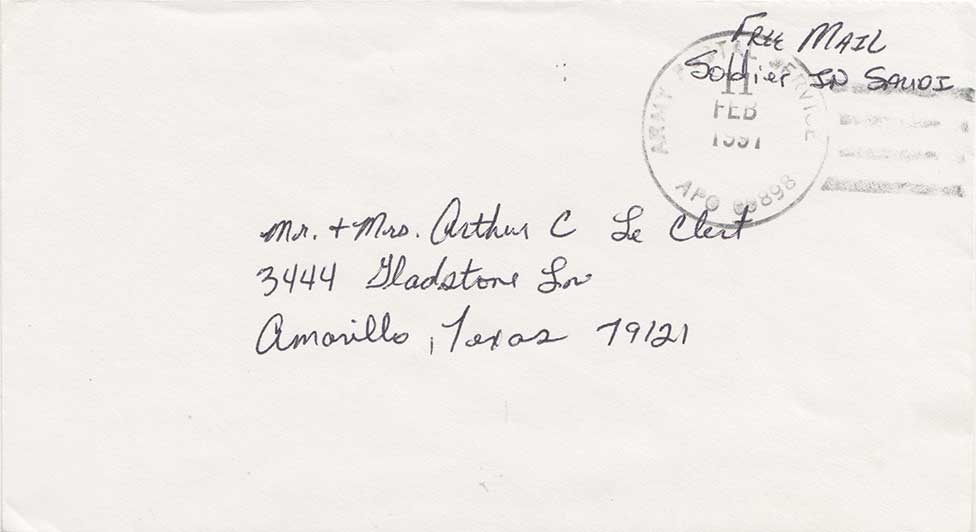 FREE MAIL
Soldier IN SAUDI
ARMY POSTAL SERVICE
11
FEB
1991
APO 09898
Mr. + Mrs. Arthur C Le Clert
3444 Gladstone Ln
Amarillo, Texas 79121